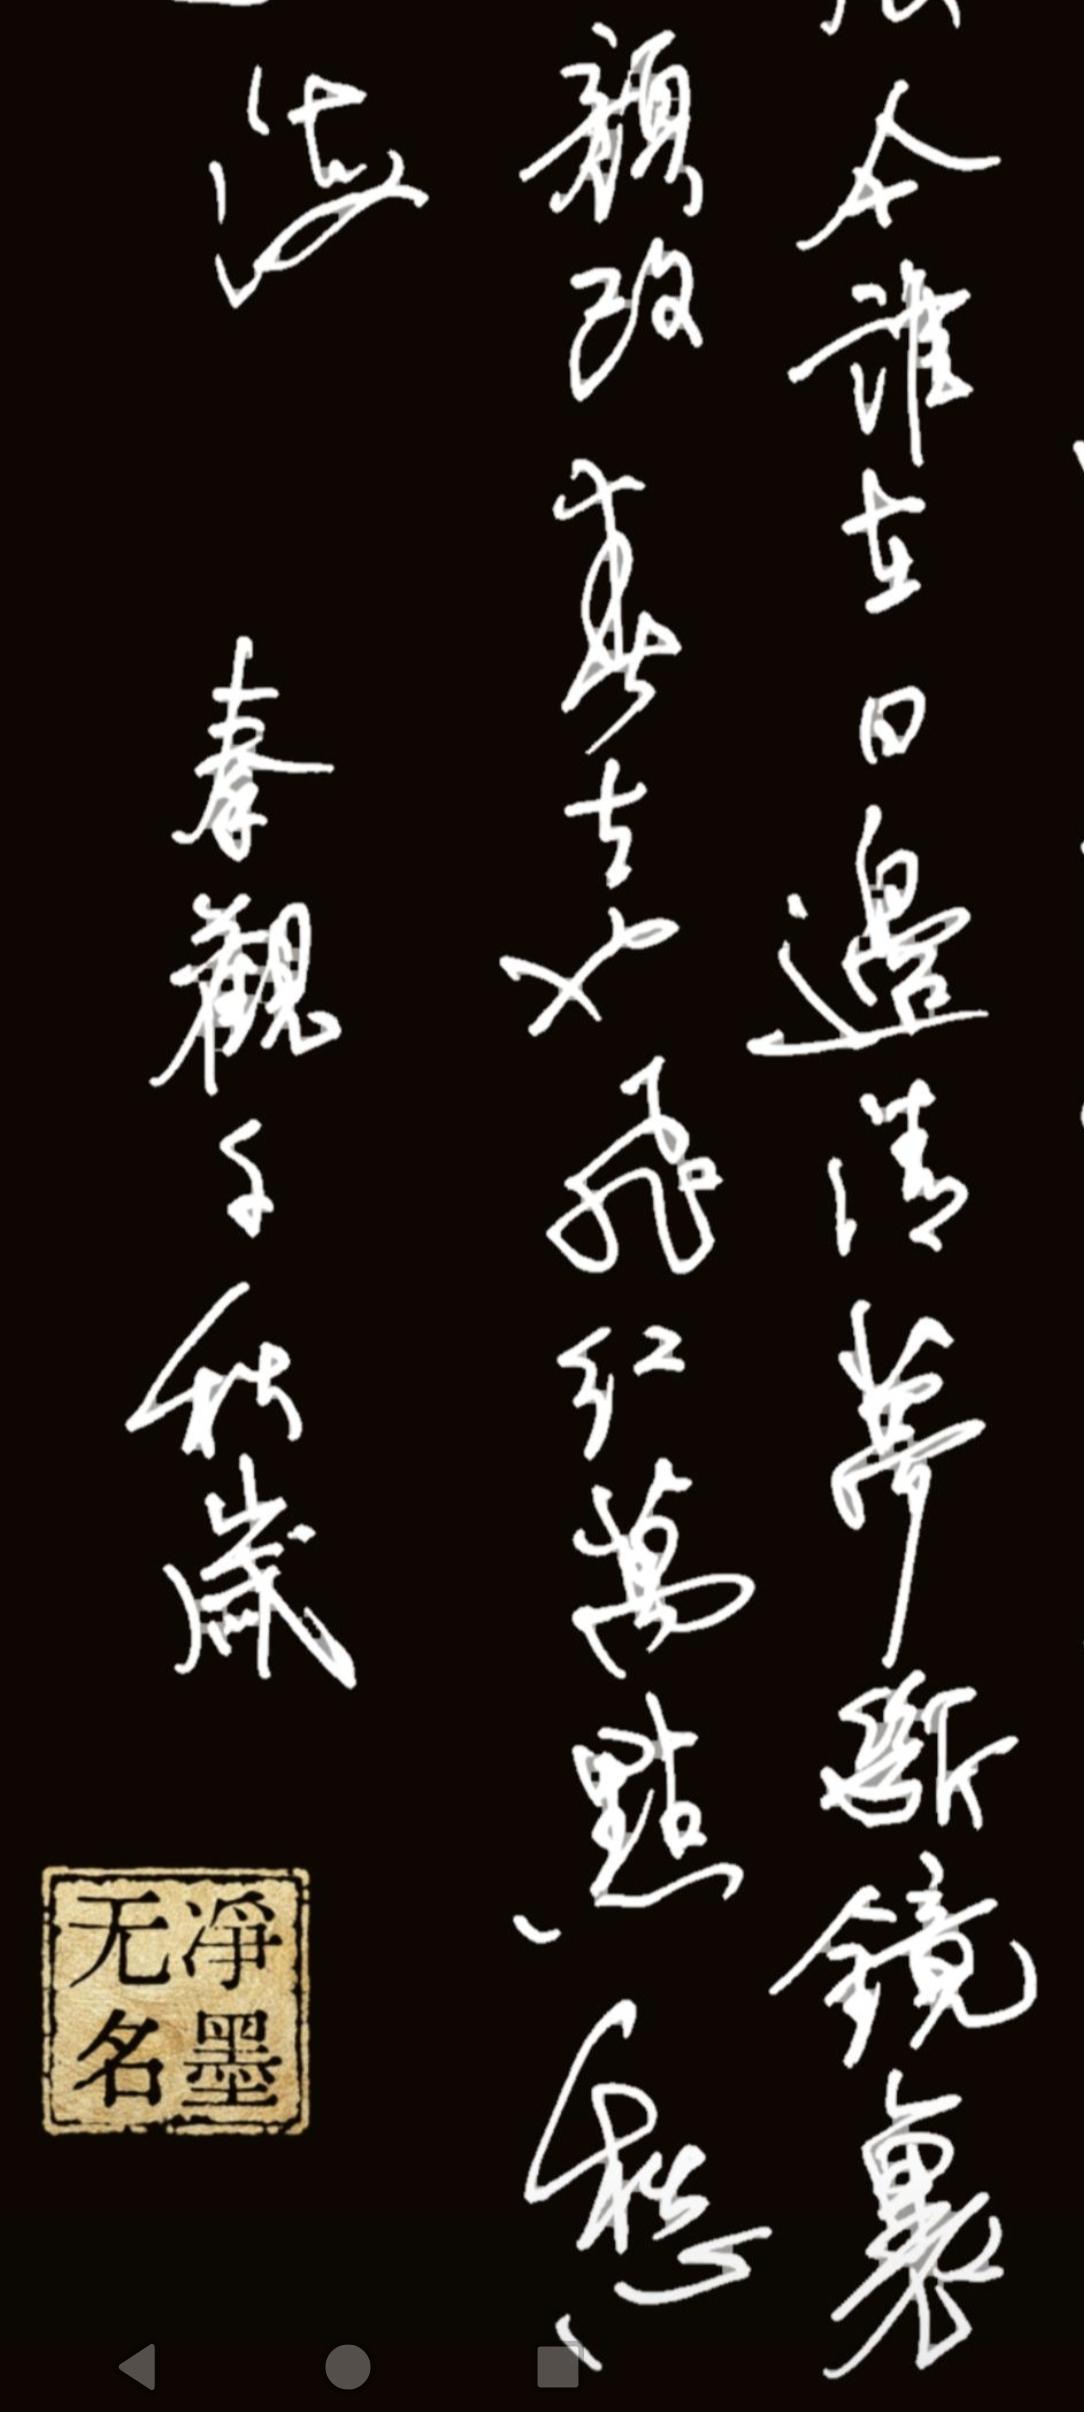 今誰在日邊清夢斷鏡裏
顏改春去也飛紅萬點愁
海
秦觀千秋歲
凈墨
无名